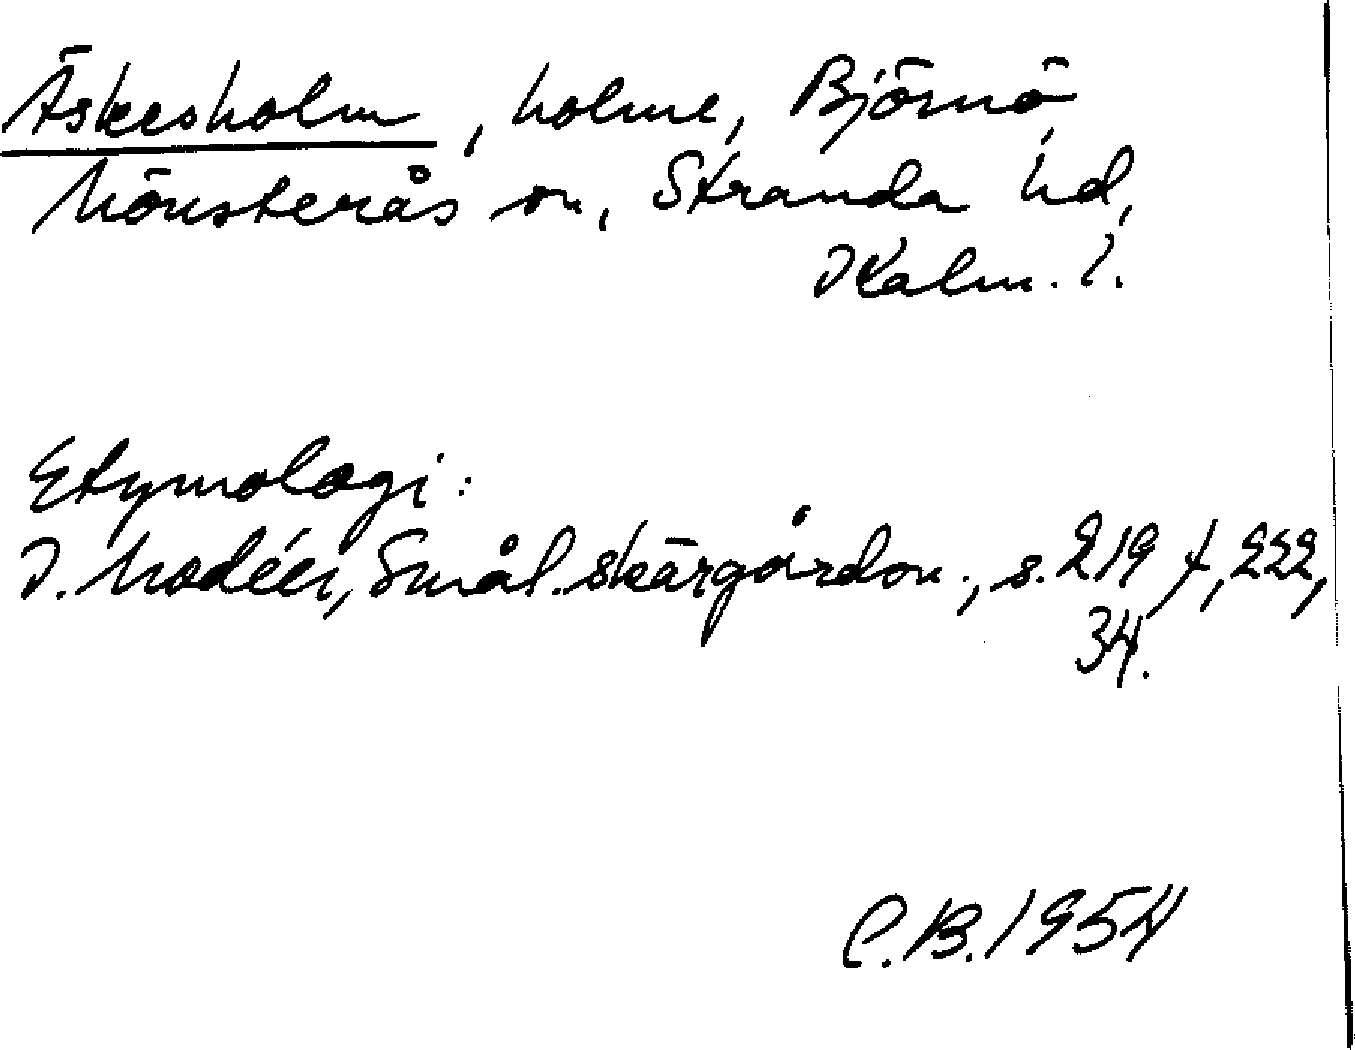 Äskesholm, holme, Björnö,
Mönsterås sn, Stranda hd,
Kalm. l.
Etymologi:
I. Modéer, Smål. skärgårdsn., s. 219 f, 222,
34.
C.B. 1954